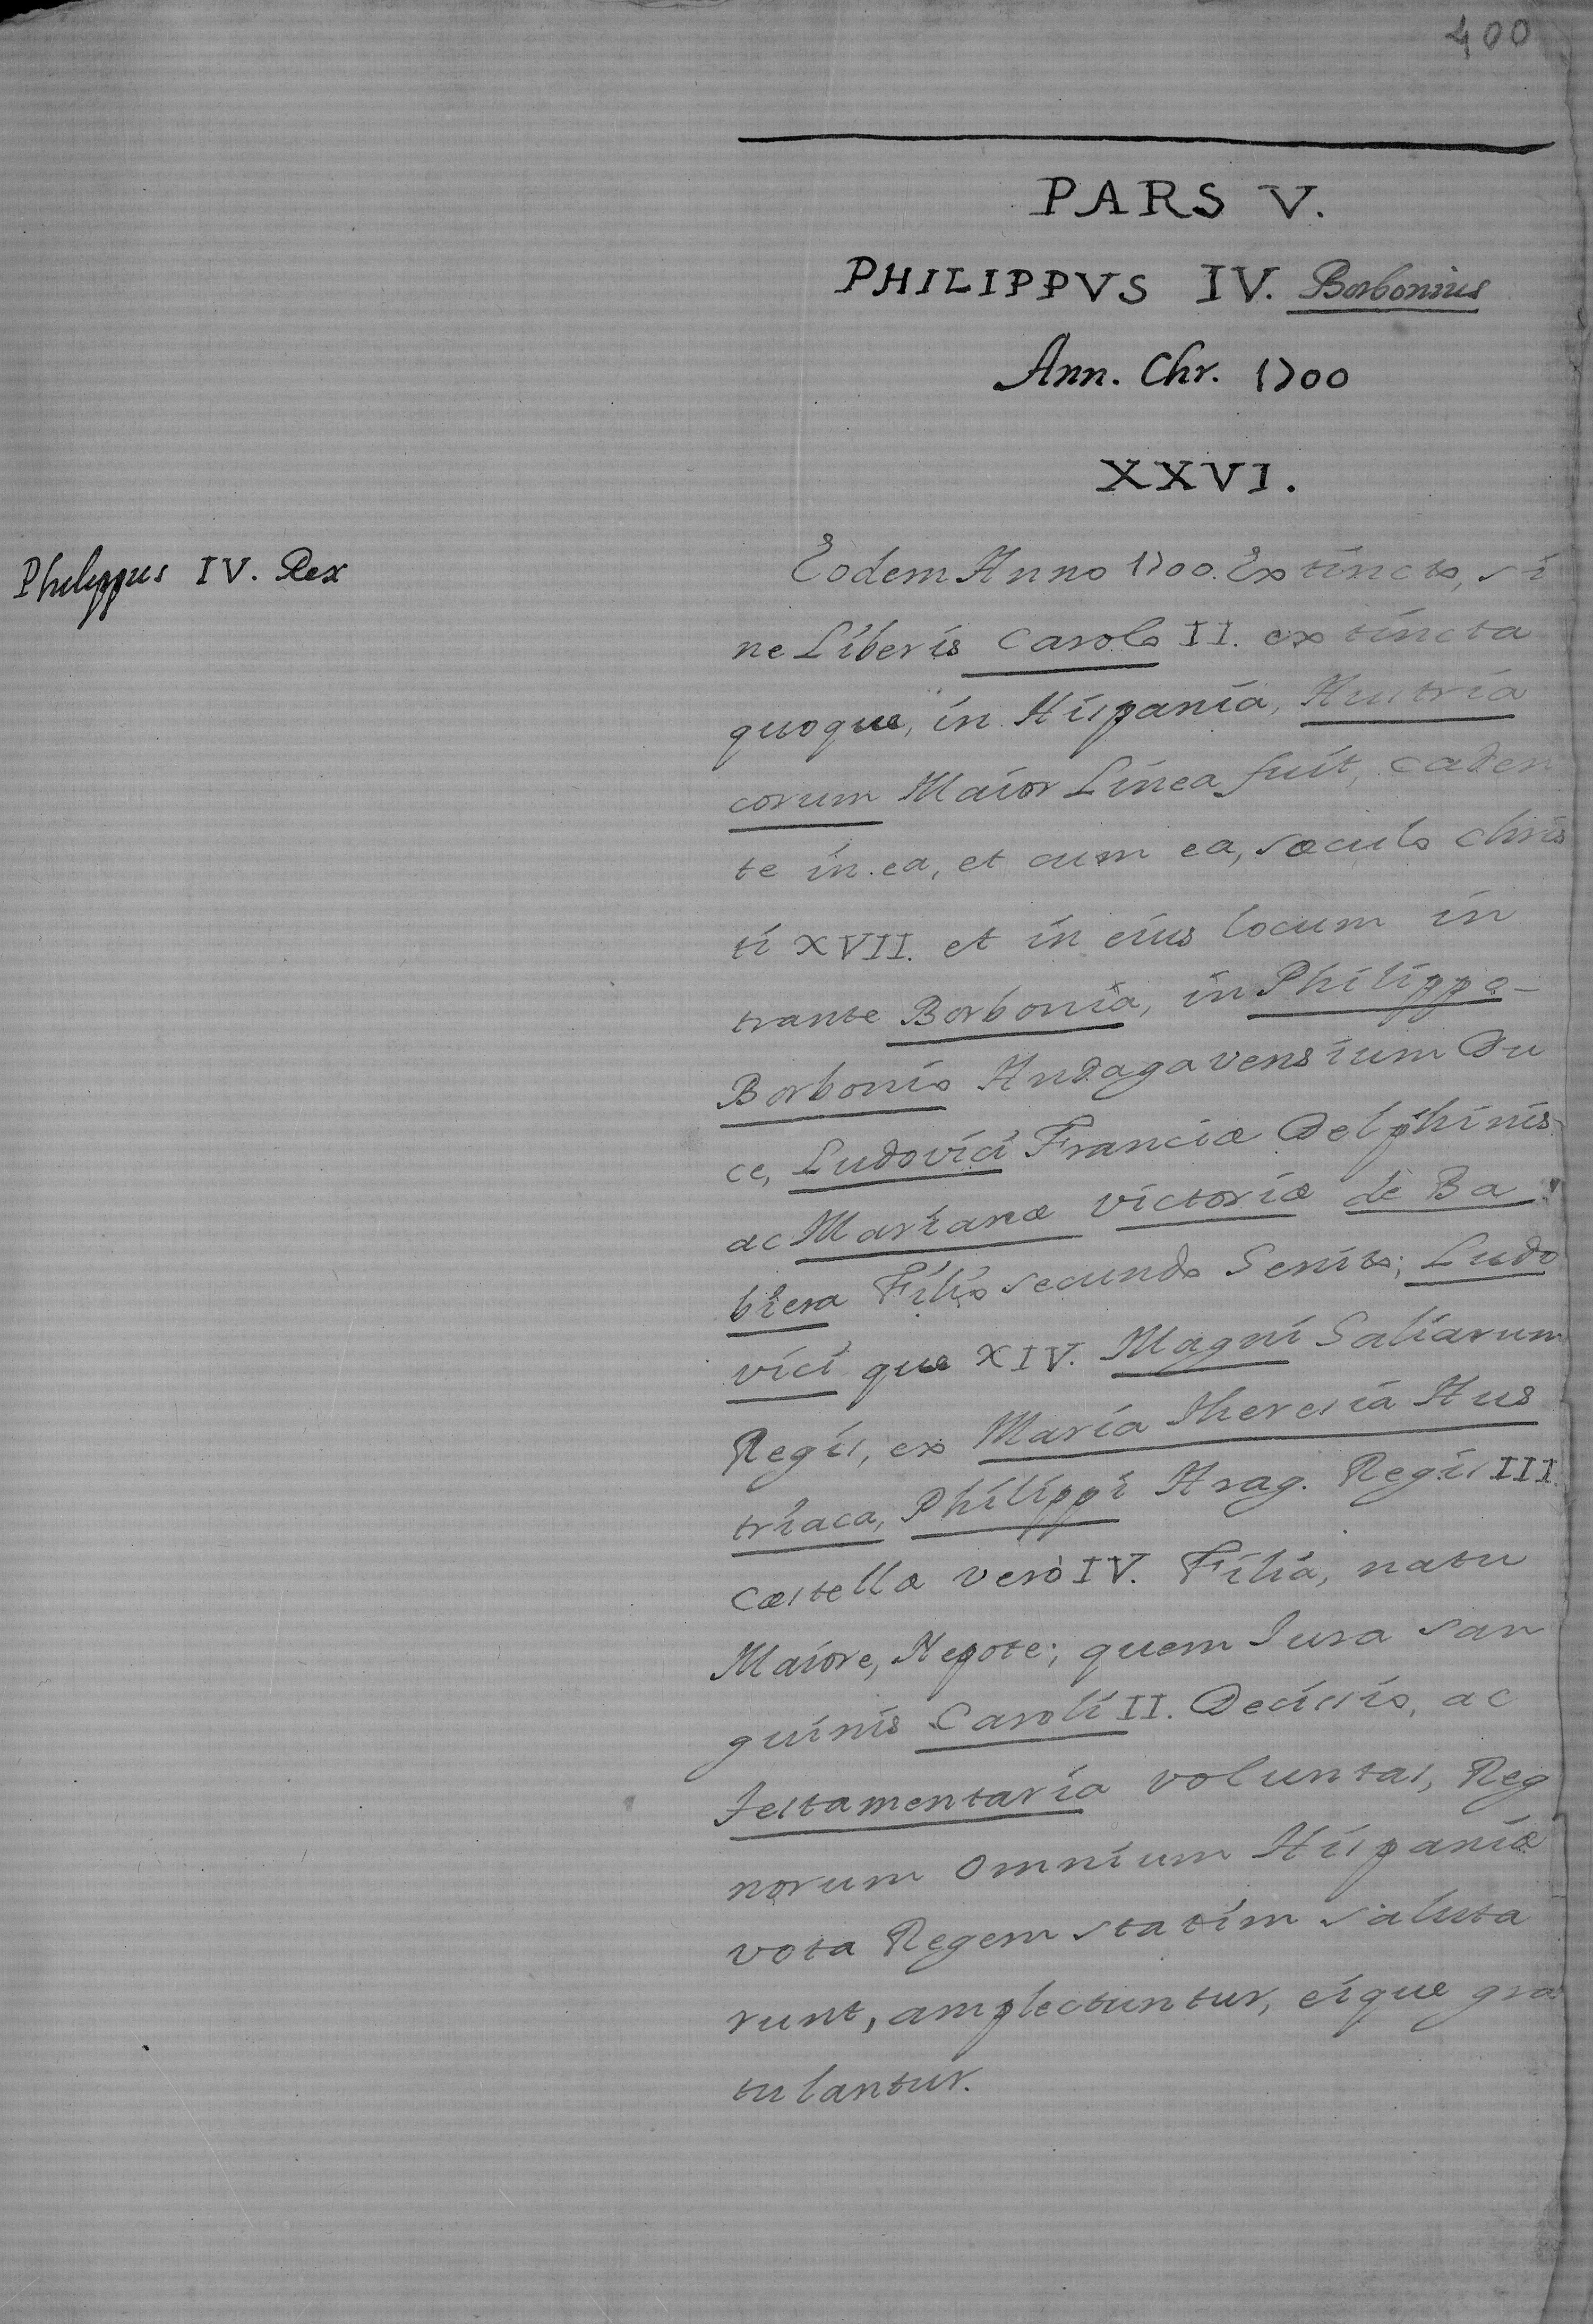 400
PARS V.
PHILIPPVS IV. Borbonius
Ann. Chr. 1700
XXVI.
Philippus IV. Rex
Eodem Anno 1700. Extincto, si
ne Liberis Carolo II. extincta
quoque, in Hispania, Austria
corum Maior Linea fuit, caden
te in ea, et cum ea, sæculo Chris
ti XVII. et in eius locum in
trante Borbonia, in Philippo-
Borbonio Andagavensium Du
ce, Ludovici Franciæ Delphinis
ac Marianæ Victoriæ de Ba
biera Filio secundo Genito; Ludo
vici que XIV. Magni Galiarum
Regis, ex Maria Theresia Aus
triaca, Philippi Arag. Regis III.
Castellæ verò IV. Filia, natu
Maiore, Nepote; quem Iura san
guinis Caroli II. Decissio, ac
Testamentaria voluntas, Reg
norum omnium Hispaniæ
vota Regem statim saluta
runt, amplectuntur, eique gra
tulantur.